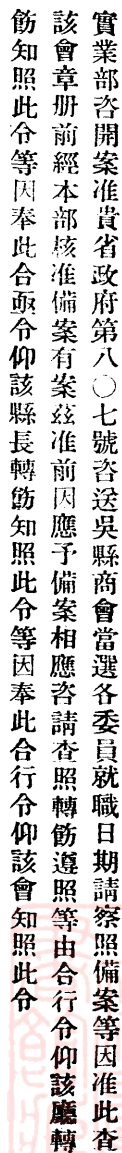 實業部咨開案准貴省政府第八〇七號咨送吳縣商會當選各委員就職日期請察照備案等因准此查
該會章册前經本部核准備案有案玆准前因應予備案相應咨請查照轉飭遵照等由合行令仰該廳轉
飭知照此令等因奉此合亟令仰該縣長轉飭知照此令等因奉此合行令仰該會知照此令